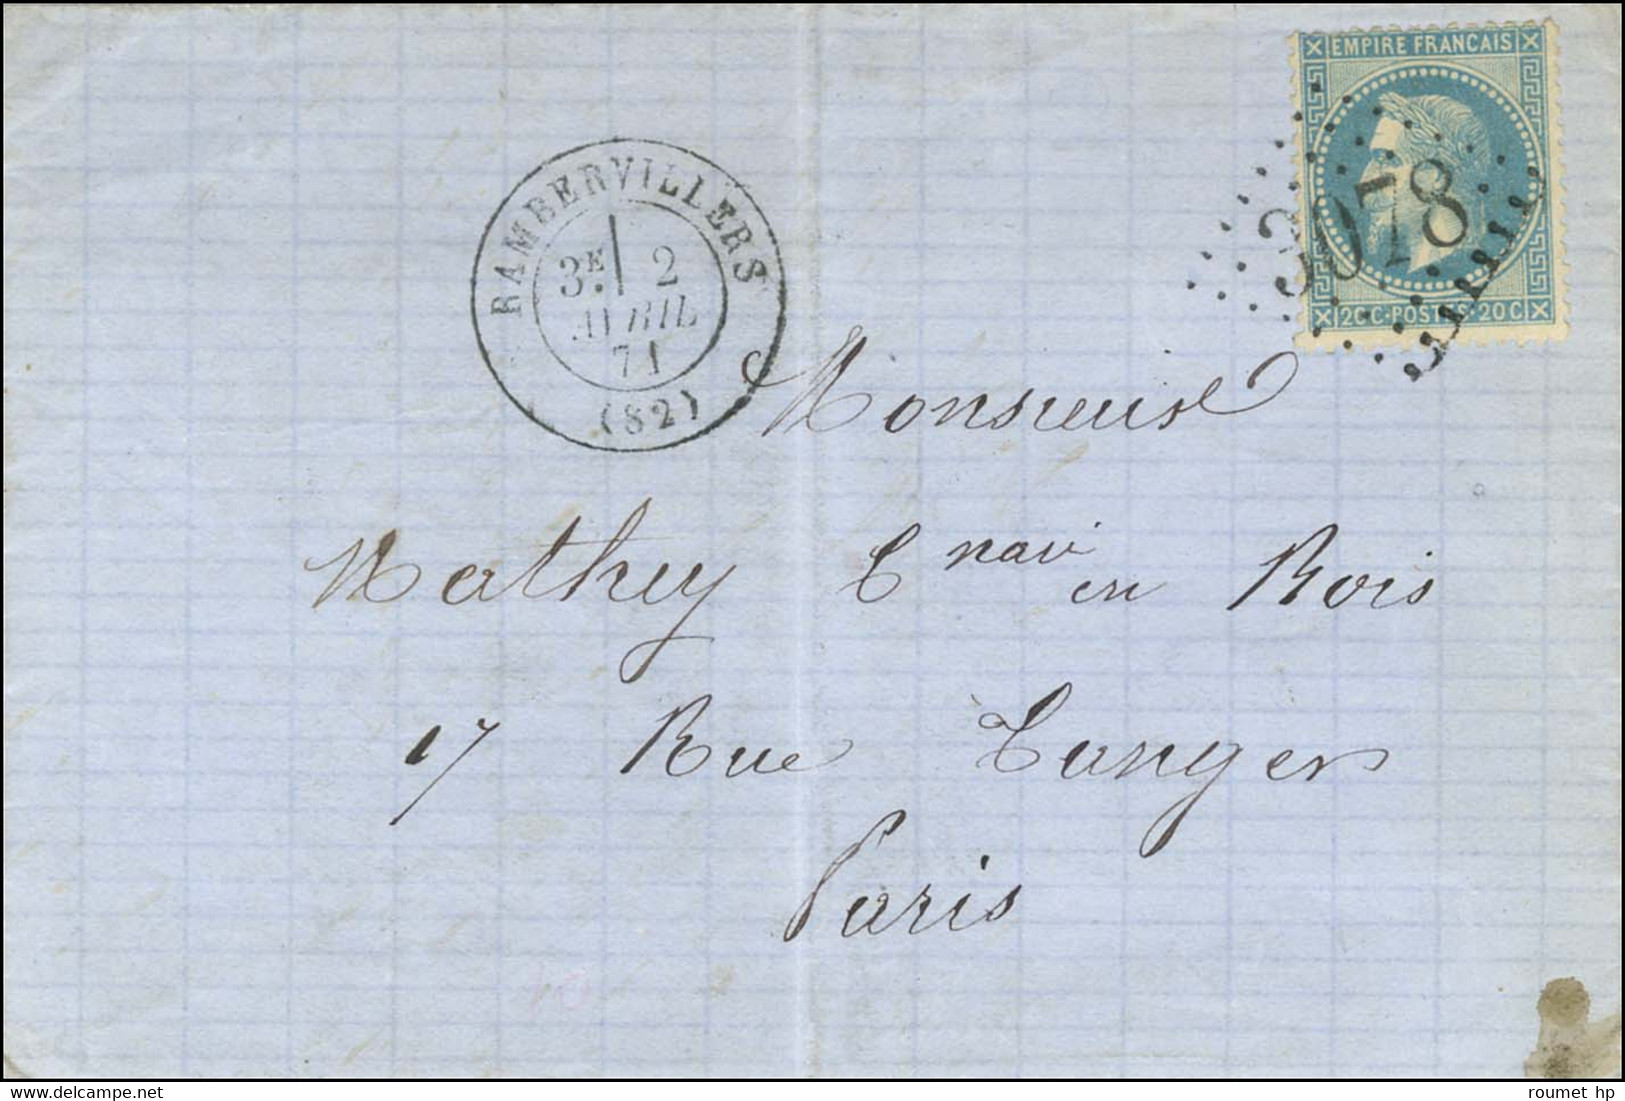 EMPIRE FRANCAIS
3078
20 C · POSTES · 20 C
RAMBERVILLERS
3E 2
AVRIL
71
(82)
Monsieur
Mathey Cnair en Bois
17 Rue Tanger
Paris
delcampe.net
roumet hp